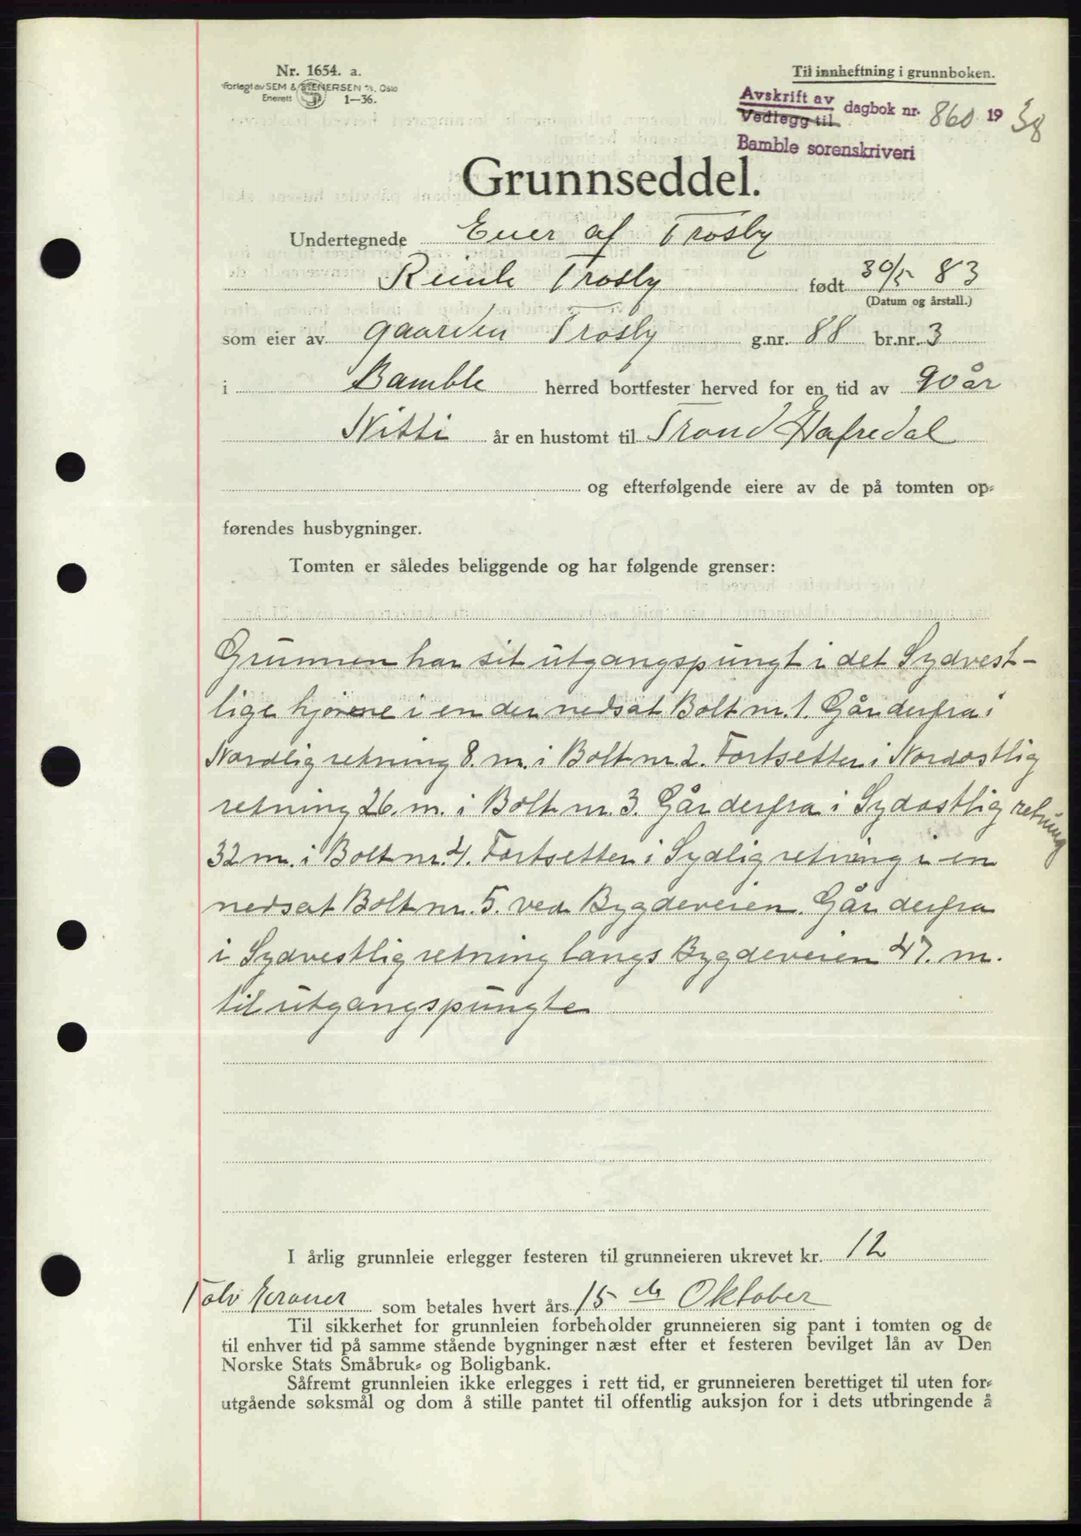 Nr. 1654. a.
Forlegt av SEM & STENERSEN A/S, Oslo
Enerett 1-36.
Til innheftning i grunnboken.
Avskrift av
Vedlegg til dagbok nr. 860 1938
Bamble sorenskriveri
Grunnseddel.
Undertegnede Eier af Trosby
Trosby født 30/5 83
(Datum og årstall.)
som eier av gaarden Trosby g.nr. 88 br.nr. 3
i Bamble herred bortfester herved for en tid av 90 år
Nitti år en hustomt til Trond Hafredal
og efterfølgende eiere av de på tomten op-
førendes husbygninger.
Tomten er således beliggende og har følgende grenser:
Grunnen har sit utgangspungt i det Sydvest-
lige hjörne i en der nedsat Bolt nr. 1. Går derfra i
Nordlig retning 8. m. i Bolt nr. 2. Fortsetter i Nordostlig
retning 26. m. i Bolt nr. 3. Går derfra i Sydostlig retning
32 m. i Bolt nr. 4. Fortsetter i Sydlig retning i en
nedsat Bolt nr. 5. ved Bygdeveien. Går derfra
i Sydvestlig retning langs Bygdeveien 47. m.
til utgangspungte
I årlig grunnleie erlegger festeren til grunneieren ukrevet kr. 12
Tolv Kroner som betales hvert års 15 de Oktober
Til sikkerhet for grunnleien forbeholder grunneieren sig pant i tomten og de
til enhver tid på samme stående bygninger næst efter et festeren bevilget lån av Den
Norske Stats Småbruk- og Boligbank.
Såfremt grunnleien ikke erlegges i rett tid, er grunneieren berettiget til uten for-
utgående søksmål og dom å stille pantet til offentlig auksjon for i dets utbringende å